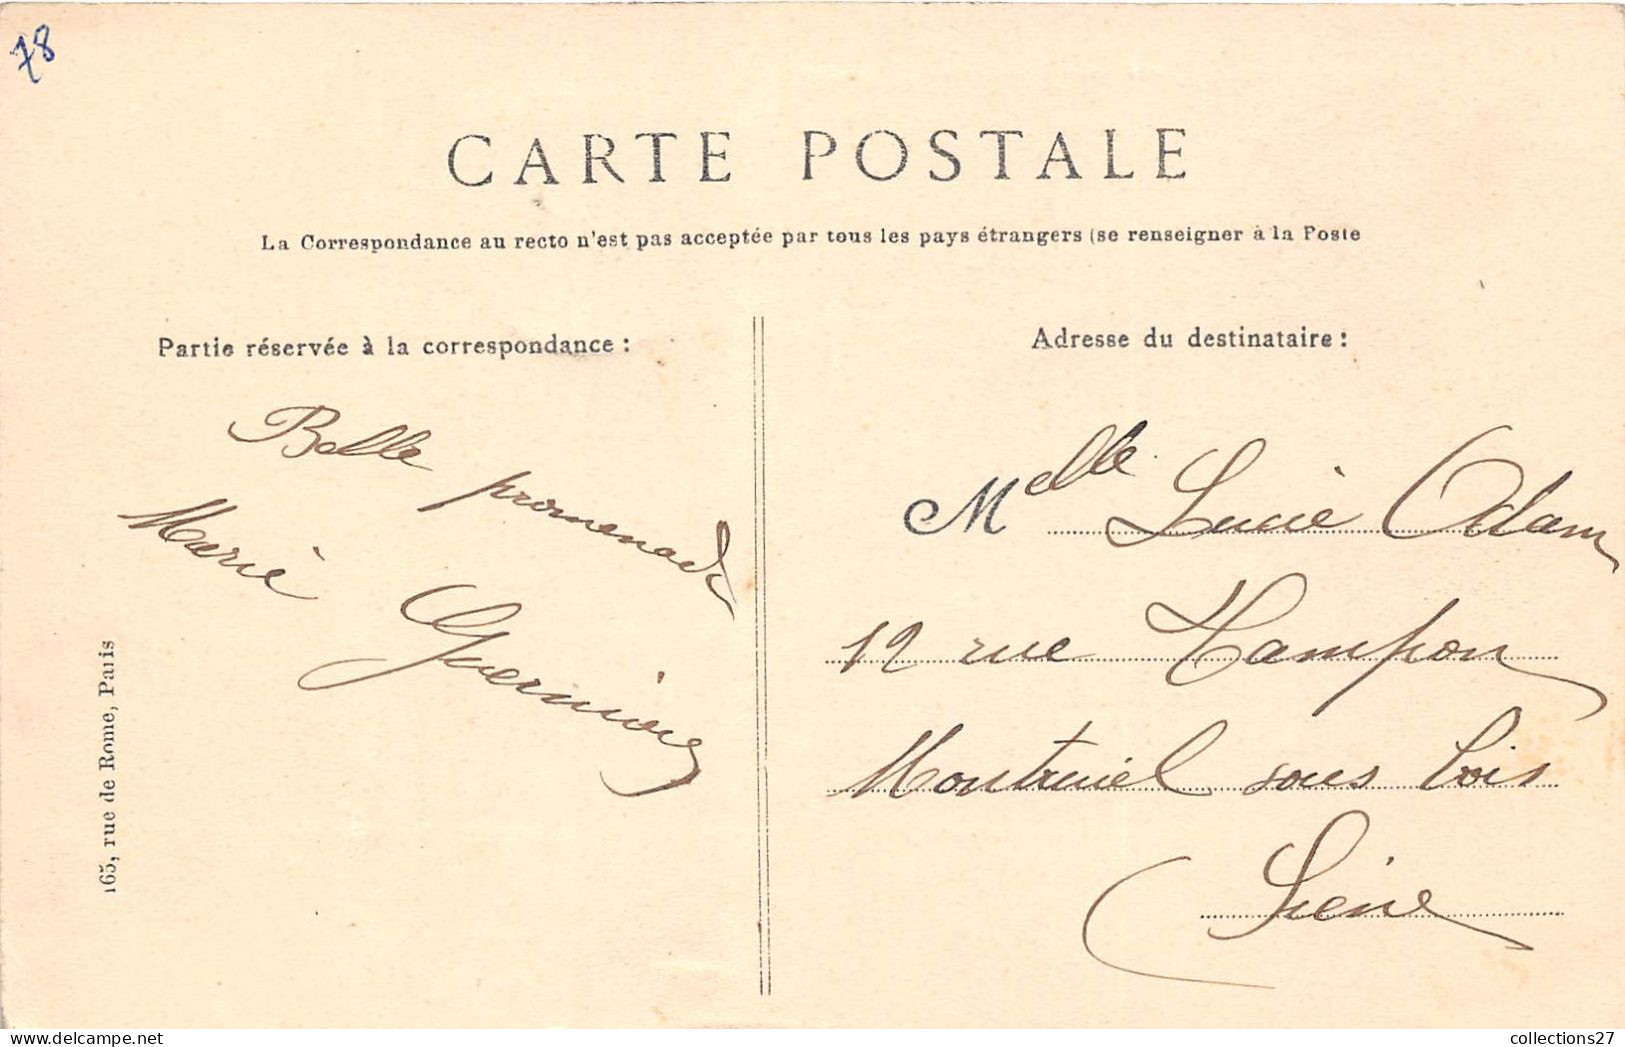 78
CARTE POSTALE
La Correspondance au recto n'est pas acceptée par tous les pays étrangers (se renseigner à la Poste
Partie réservée à la correspondance :
Belle promenade
Marie
165, rue de Rome, Paris
Adresse du destinataire :
Melle Lucie Adam
12 rue
Montreuil sous bois
Seine
collections27